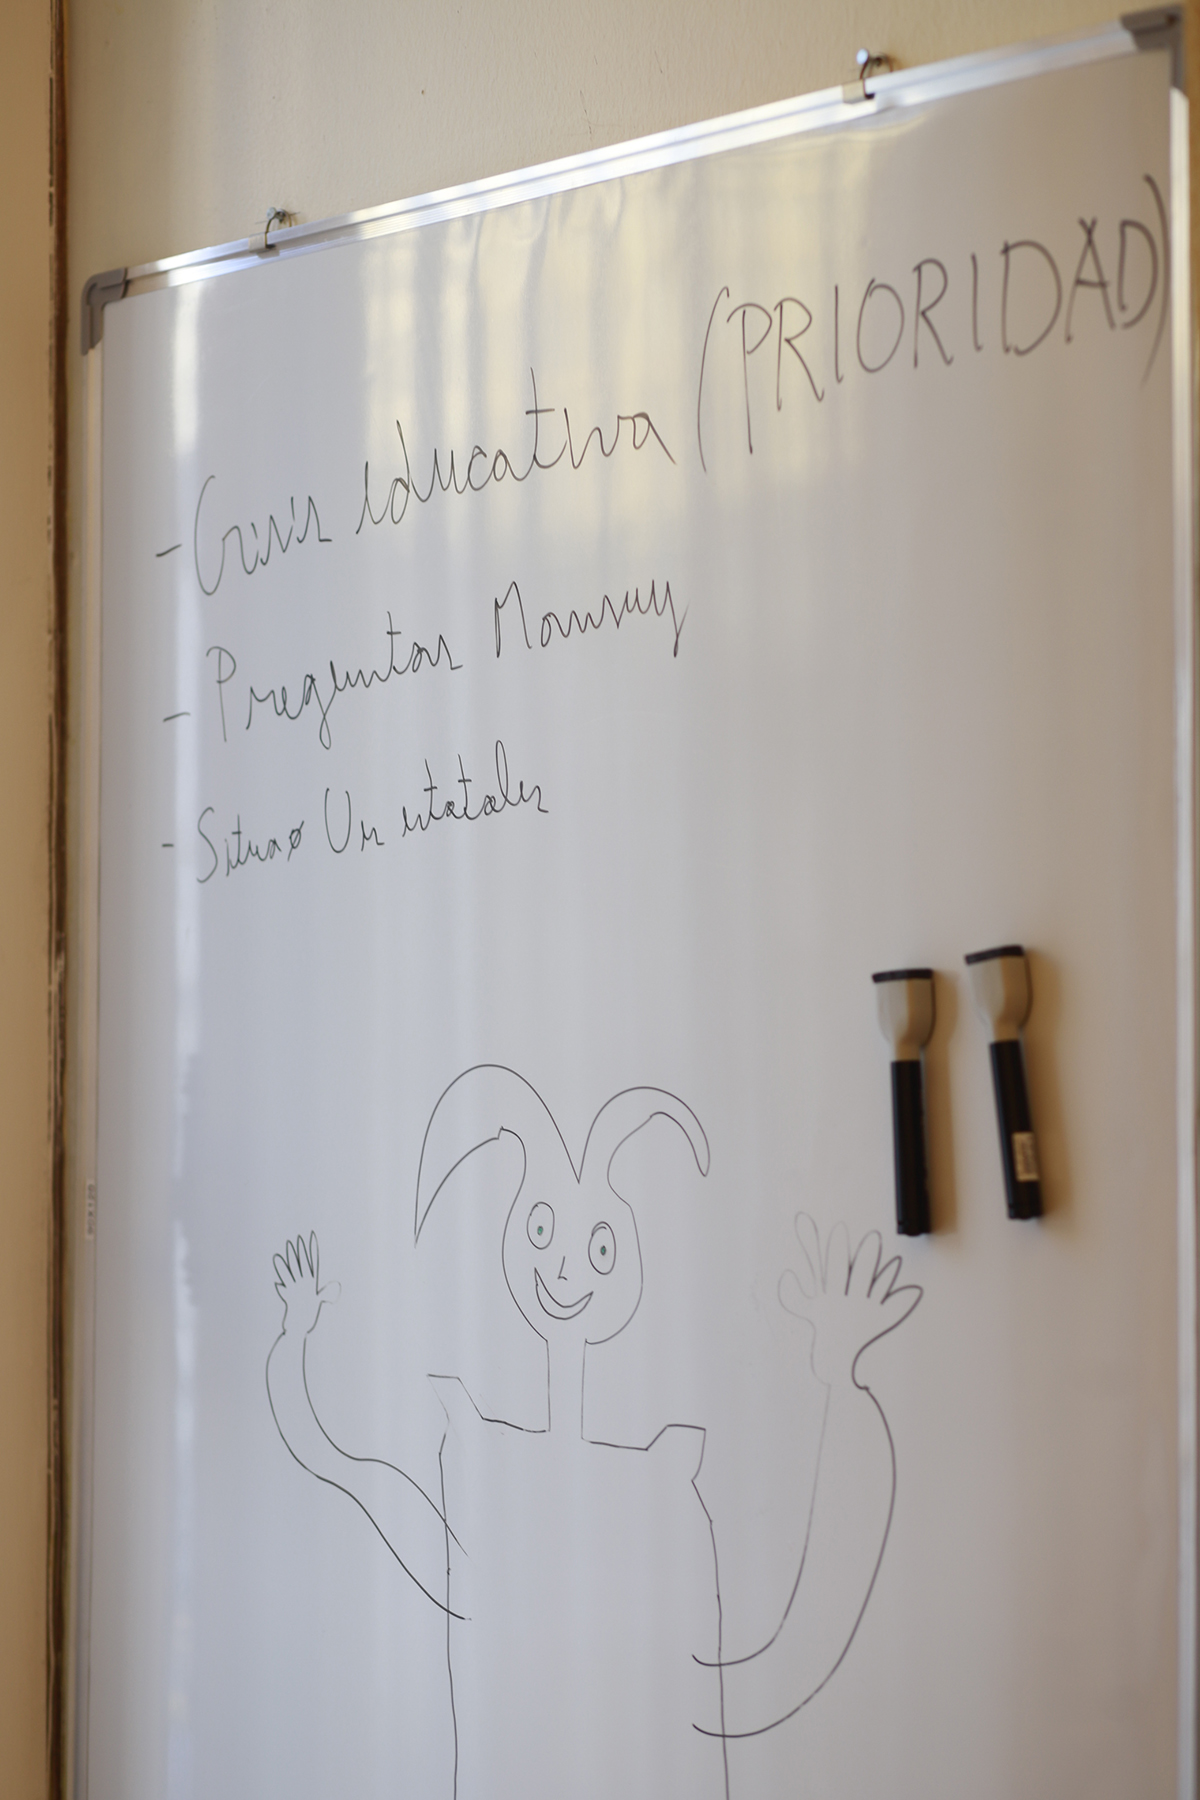 - Crisis educativa (PRIORIDAD)
- Preguntas Monsuy
- Situaº Us estatales